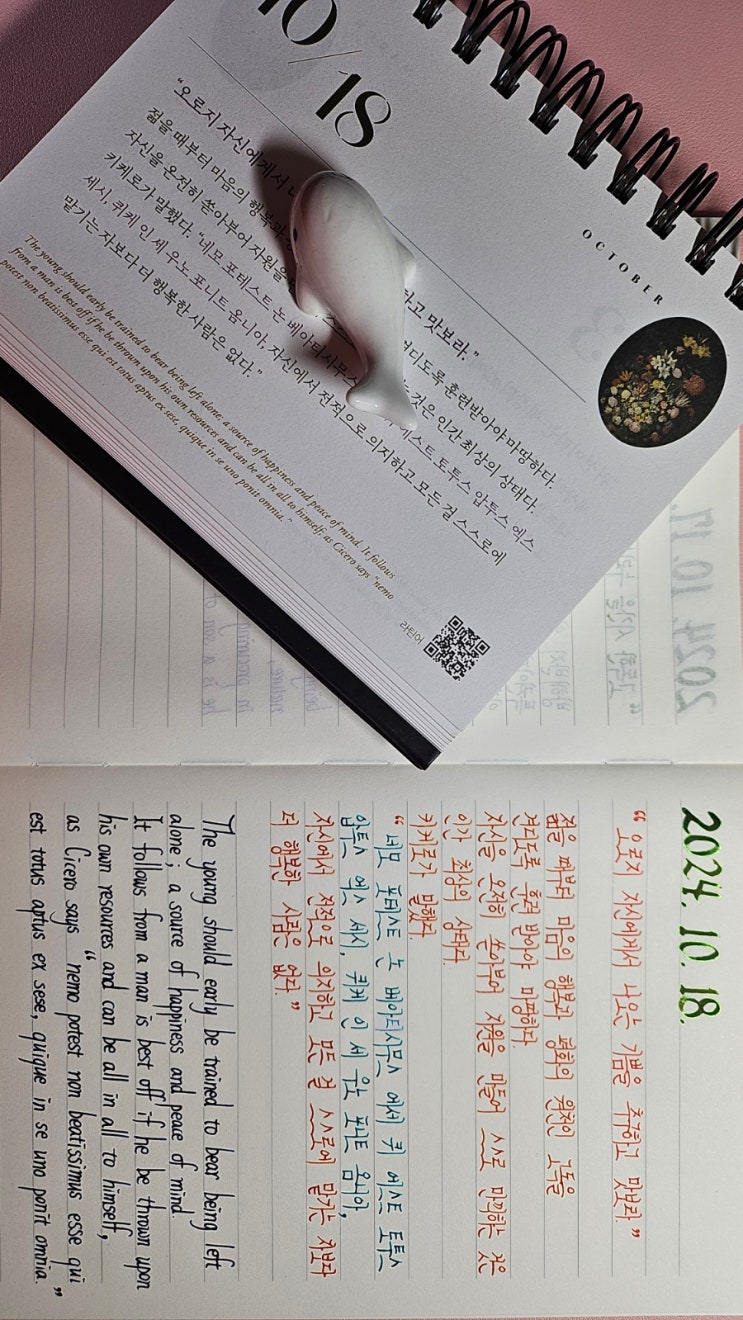 10/18
OCTOBER
“오로지 자신에게서 하고 맛보라.”
젊을 때부터 마음의 행복과 견디도록 훈련받아야 마땅하다.
자신을 온전히 쏟아부어 자원을 것은 인간 최상의 상태다.
키케로가 말했다. “네모 포테스트 논 베아티시무스 에스트 토투스 압투스 엑스
세시, 퀴케 인 세 우노 포니트 옴니아, 자신에서 전적으로 의지하고 모든 걸 스스로에
맡기는 자보다 더 행복한 사람은 없다.”
The young should early be trained to bear being left alone; a source of happiness and peace of mind. It follows
from a man is best off if he be thrown upon his own resources and can be all in all to himself; as Cicero says “nemo
potest non beatissimus esse qui est totus aptus ex sese, quique in se uno ponit omnia.”
라틴어
2024. 10. 17.
2024. 10. 18.
“오로지 자신에게서 나오는 기쁨을 추구하고 맛보라.”
젊을 때부터 마음의 행복과 평화의 원천인 고독을
견디도록 훈련 받아야 마땅하다.
자신을 온전히 쏟아부어 자원을 만들어 스스로 만끽하는 것은
인간 최상의 상태다.
키케로가 말했다.
“네모 포테스트 논 베아티시무스 에세 퀴 에스트 토투스
압투스 엑스 세시, 퀴케 인 세 우노 포니트 옴니아,
자신에서 전적으로 의지하고 모든 걸 스스로에 맡기는 자보다
더 행복한 사람은 없다.”
The young should early be trained to bear being left
alone; a source of happiness and peace of mind.
It follows from a man is best off if he be thrown upon
his own resources and can be all in all to himself,
as Cicero says “nemo potest non beatissimus esse qui
est totus aptus ex sese, quique in se uno ponit omnia.”